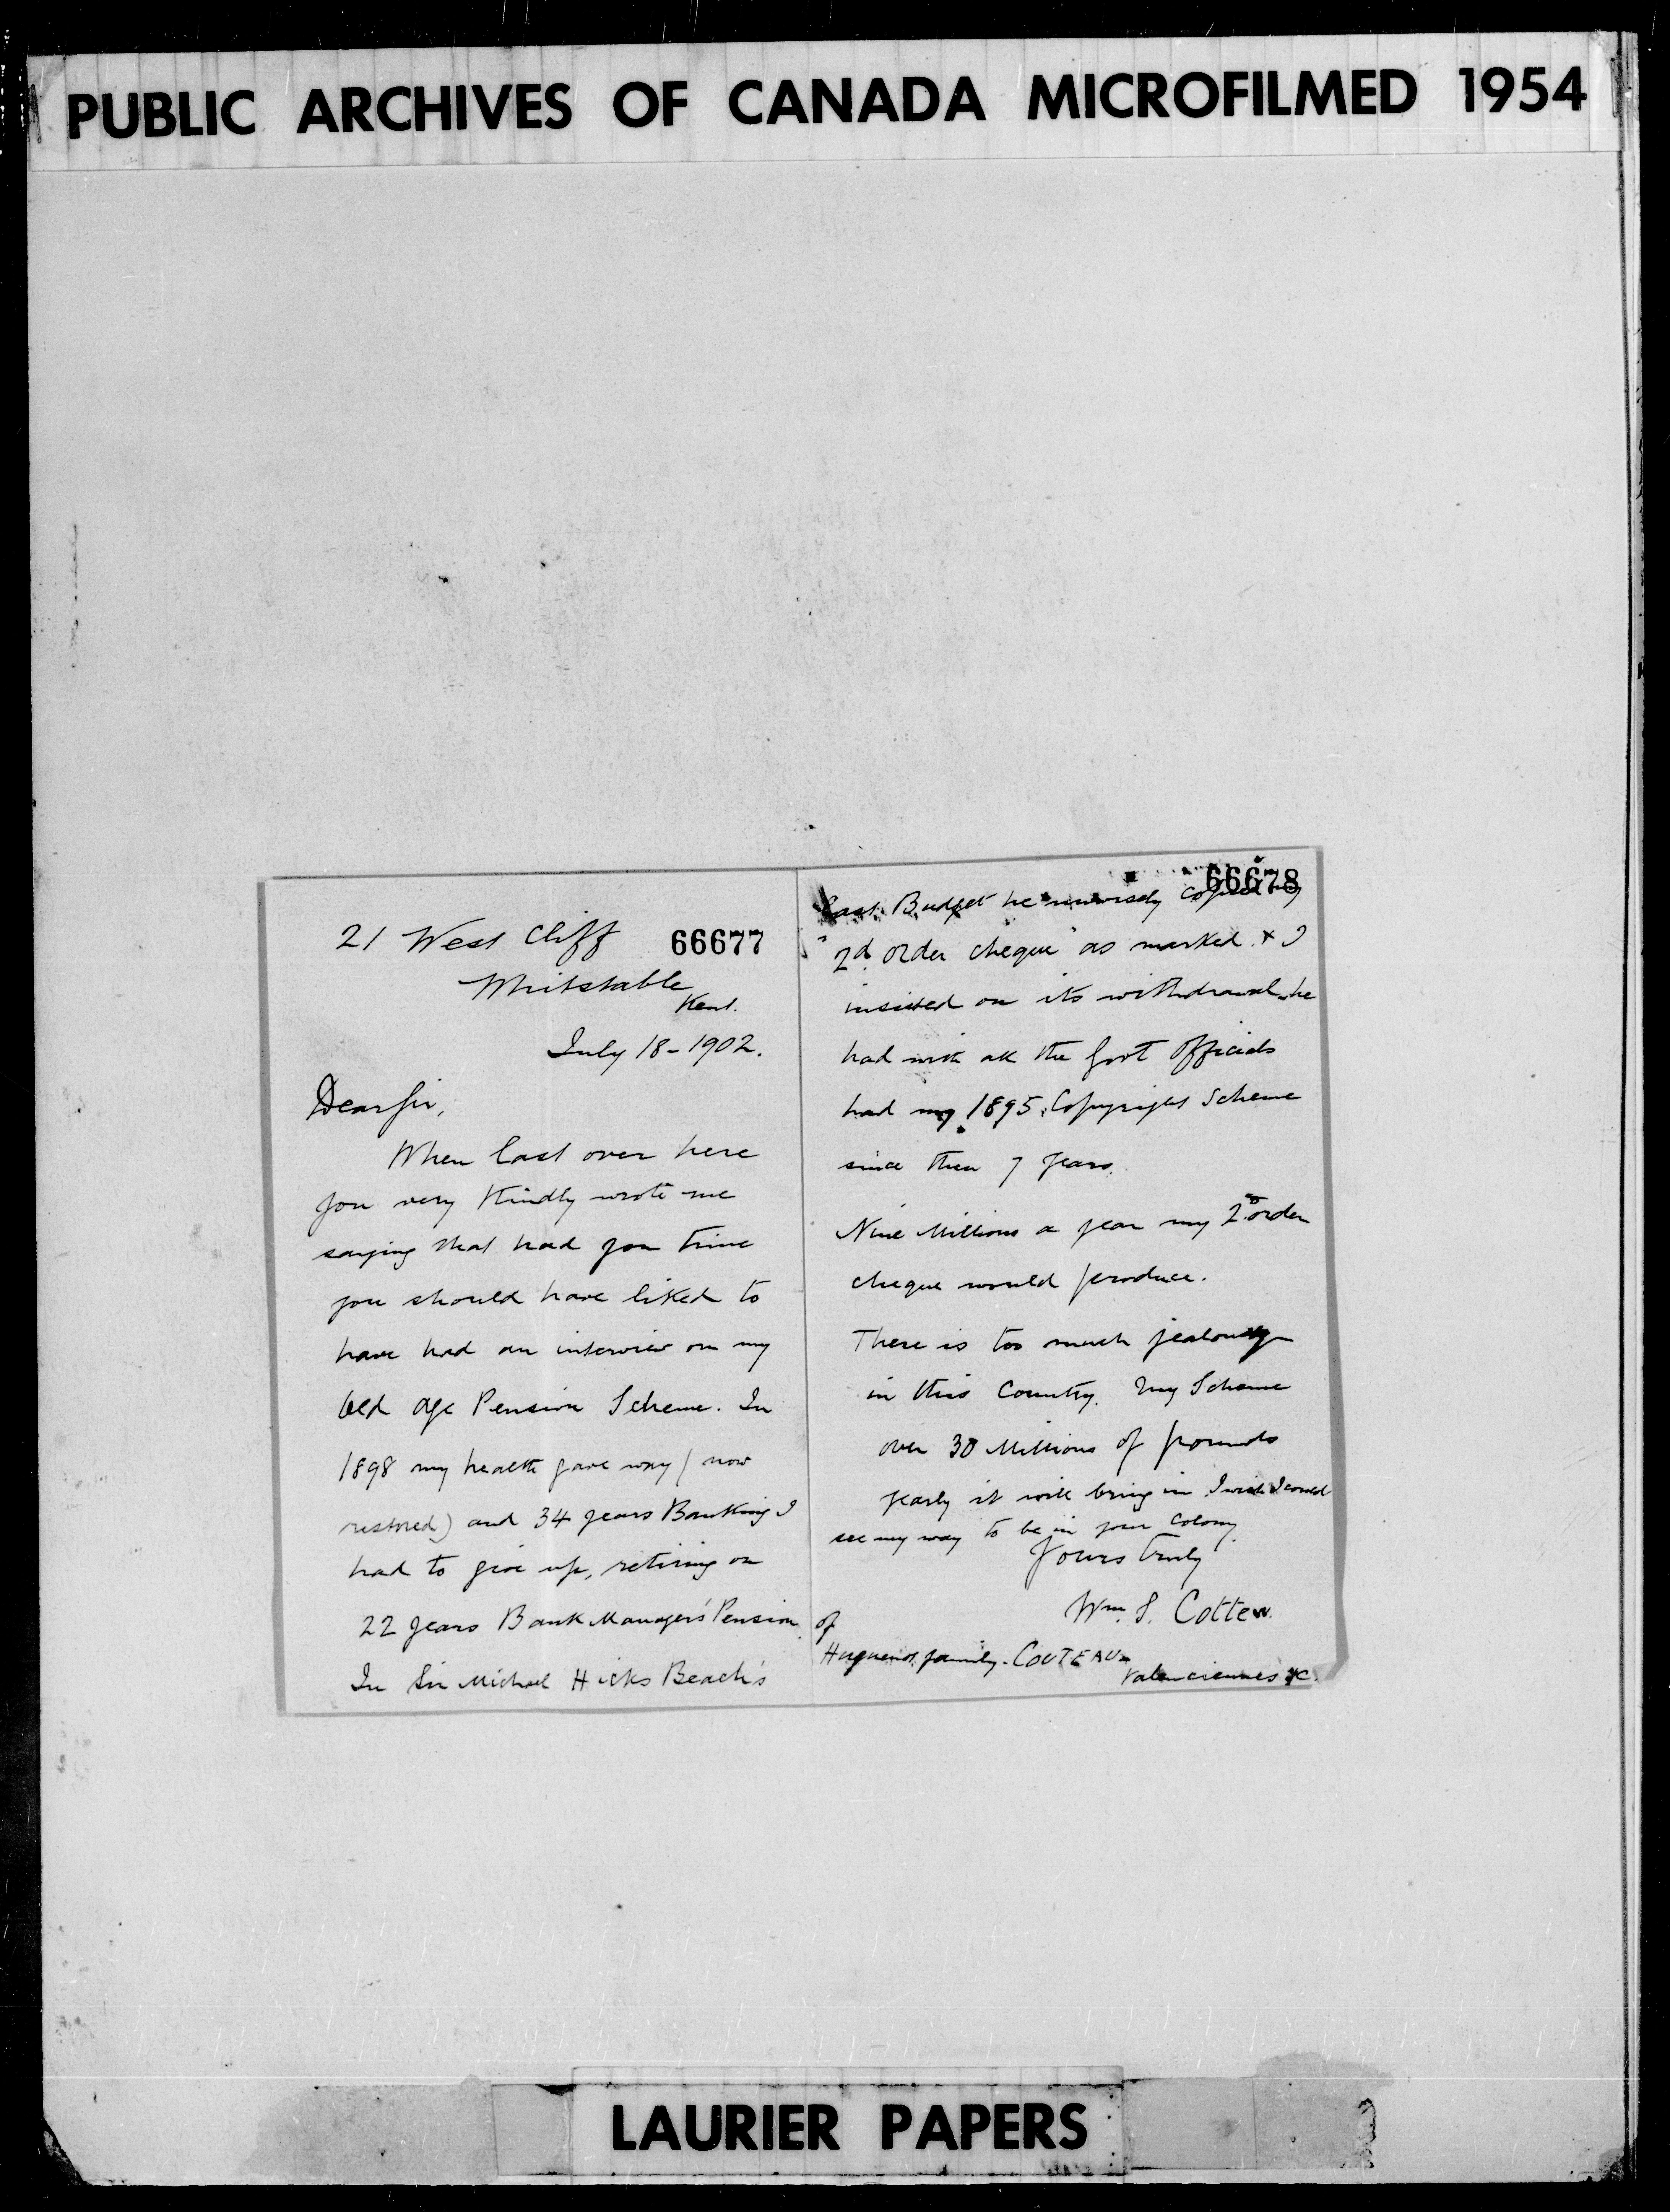 PUBLIC ARCHIVES OF CANADA MICROFILMED 1954
21 West Cliff 66677
Whitstable
Kent.
July 18-1902.
Dear Sir,
When last over here
you very Kindly wrote me
saying that had you time
you should have liked to
have had an interview on my
Old Age Pension Scheme. In
1898 my health gave way (now
restored) and 34 years Banking I
had to give up, retiring on
22 years Bank Manager's Pension.
In Sir Michael Hicks Beach's
66678
last Budget he unwisely copied my
"2d. order cheque" as marked. & I
insisted on its withdrawal, he
had with all the Govt Officials
had my 1895. Copyright Scheme
since then 7 years.
Nine Millions a year my 2d order
cheque would produce.
There is too much jealousy
in this Country. My Scheme
over 30 Millions of pounds
yearly it will bring in. I wish I could
see my way to be in your Colony.
Yours truly
Wm. S. Cottew.
of
Huguenot family. COUTEAU
Valenciennes &c.
LAURIER PAPERS